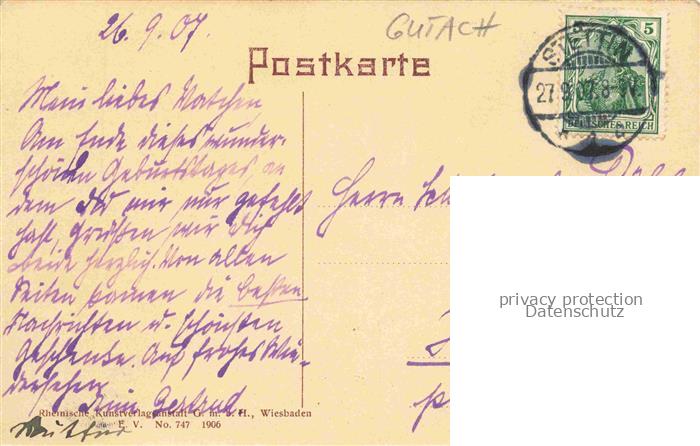 26.9.07.
GUTACH
5
STETTIN
27.9.07.8-9V.
DEUTSCHES REICH
Postkarte
Mein liebes Vatchen,
Am Ende dieses wunder-
schönen Geburtstages an
dem Du mir nur gefehlt
hast, grüßen wir Dich
beide herzlich. Von allen
Seiten kamen die besten
Nachrichten u. schönsten
Geschenke. Auf frohes Wie-
dersehen
Dein Gertrud
Mutter
Herrn
privacy protection
Datenschutz
Rheinische Kunstverlagsanstalt G. m. b. H., Wiesbaden
E. V. No. 747 1906